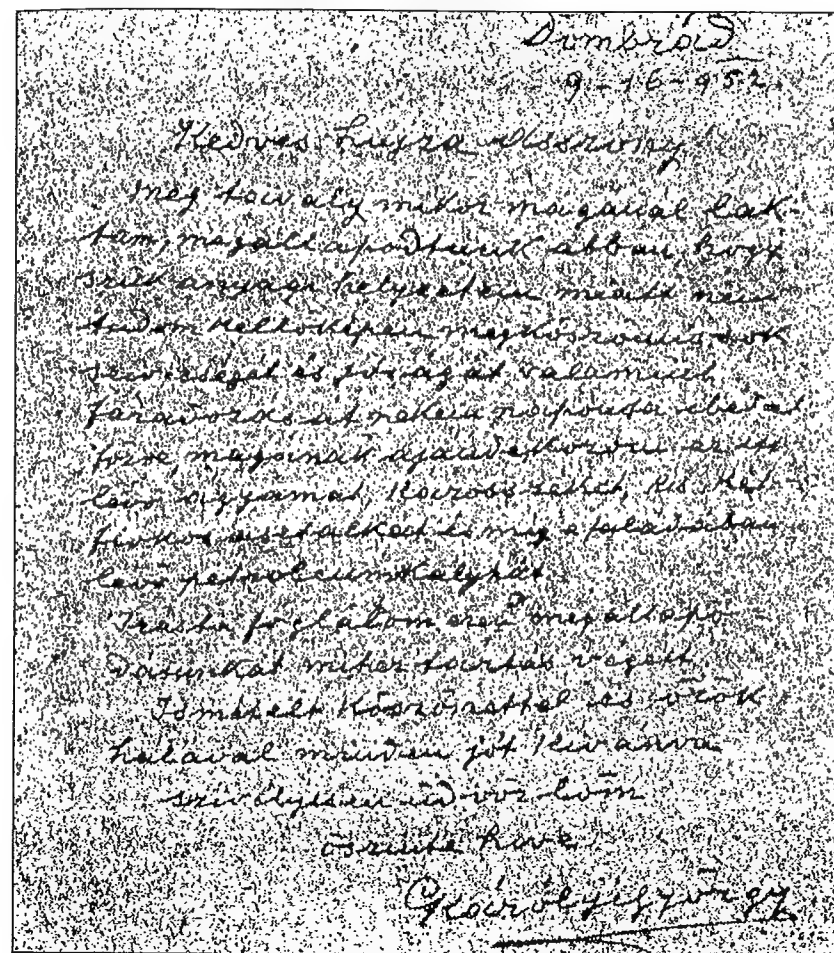 Dombrád
9-16-952.
Kedves Lujza Asszony!
Még tavaly mikor magával lak-
tam, megállapodtunk abban, hogy
szük anyagi helyzetem miatt nem
tudom kellőképen megköszönni sok
szívességét és jóságát valamint
fáradozását nekem naponta ebédet
főzve, magának ajándékozom az itt
levő ágyamat, karosszéket, kis két-
fiókos asztalkát és még a
levő petroleumkályhát.
Írásba foglalom ezen megállapo-
dásunkat mihez tartás végett.
Ismételt köszönettel és örök
hálával minden jót kivánva
szívélyesen üdvözlöm
őszinte híve
Károlyi György